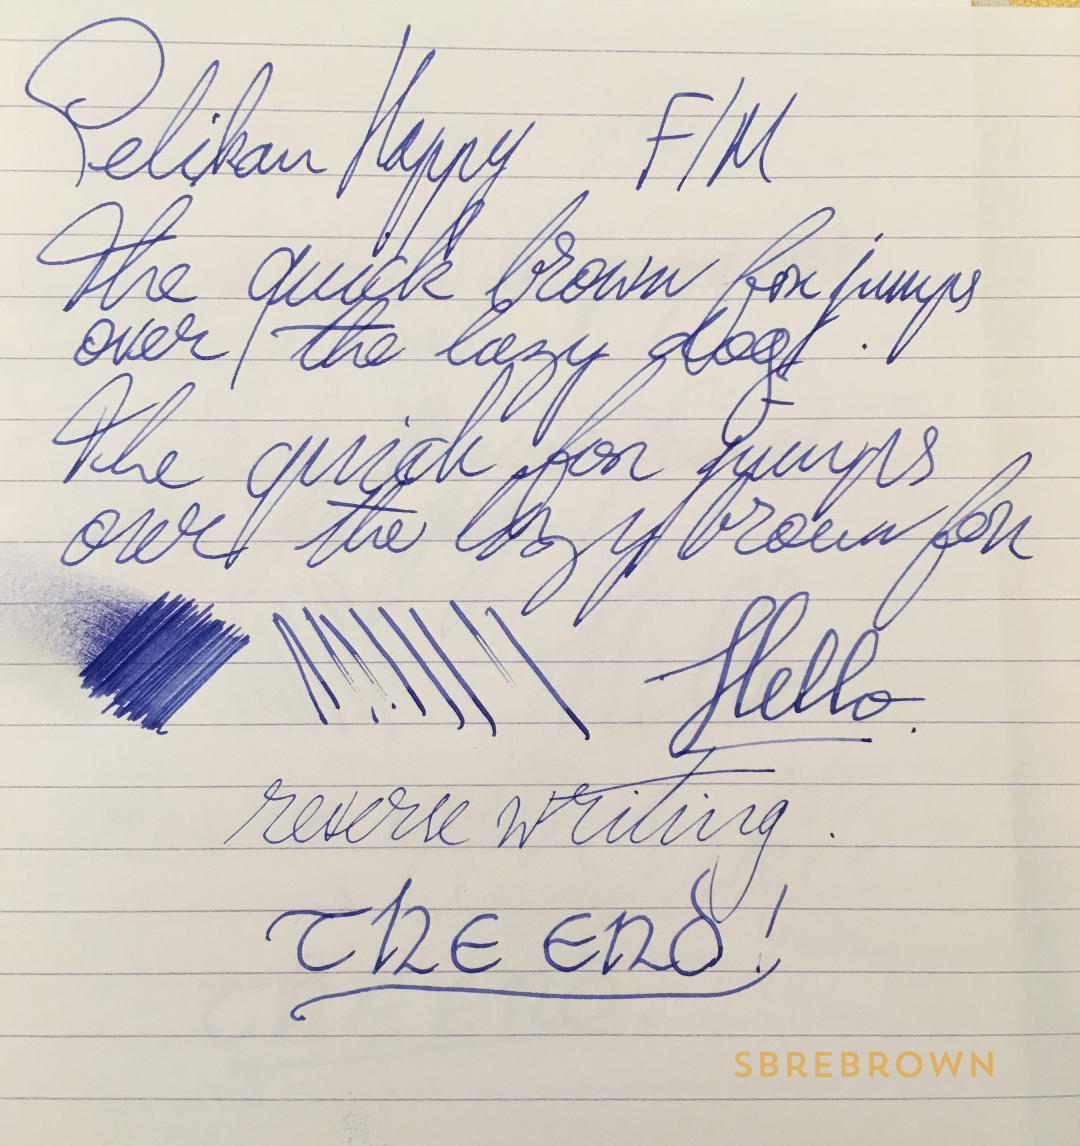 Pelikan Happy F/M
The quick brown fox jumps
over the lazy dog.
The quick fox jumps
over the lazy brown fox
Hello.
reverse writing.
THE END!
SBREBROWN